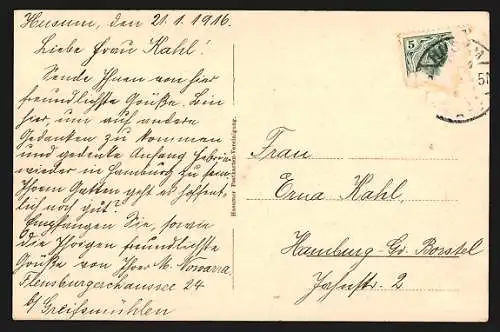 Husum, den 21.1.1916.
Liebe Frau Kahl!
Sende Ihnen von hier
freundlichste Grüße. Bin
hier, um auf andere
Gedanken zu kommen
und gedenke Anfang Februar
wieder in Hamburg zu sein.
Ihrem Gatten geht es hoffent-
lich noch gut?
Empfangen Sie, sowie
die Ihrigen freundlichste
Grüße von Ihrer M. Nowarra,
Flensburgerchaussee 24
b/ Greifsmühlen
Husumer Postkarten-Vereinigung.
5
Frau
Erna Kahl,
Hamburg-Gr. Borstel
Jahnstr. 2